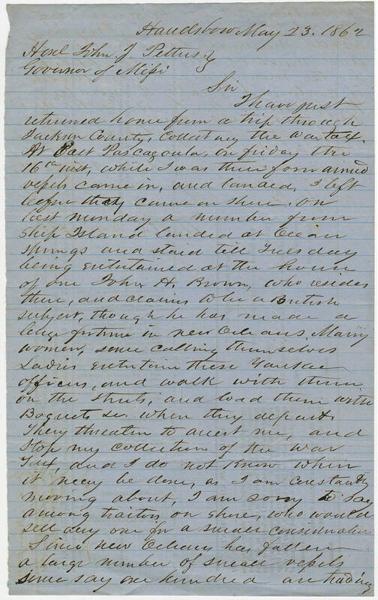 Handsboro May 23. 1862
Honl John J. Pettus
Governor of Missi
Sir
I have just
returned home from a trip through
Jackson County, Collecting the war tax.
At East Pascagoula, on friday the
16th inst, while I was there four armed
vessels came in, and landed, I left
before they came on shore. On
last monday a number from
Ship Island landed at Ocean
Springs and staid till Tuesday
being entertained at the house
of one John H. Brown, who resides
there, and claims to be a British
subject, though he has made a
large fortune in new Orleans. Many
women, some calling themselves
Ladies entertain these Yankee
officers, and walk with them
on the streets, and load them with
Boquets &c when they depart.
They threaten to arrest me, and
stop my collection of the war
Tax, and I do not know when
it may be done, as I am constantly
moving about, I am sorry to say
among traitors on shore, who would
sell any one for a small consideration
Since new Orleans has fallen
a large number of small vessels
some say one hundred are trading